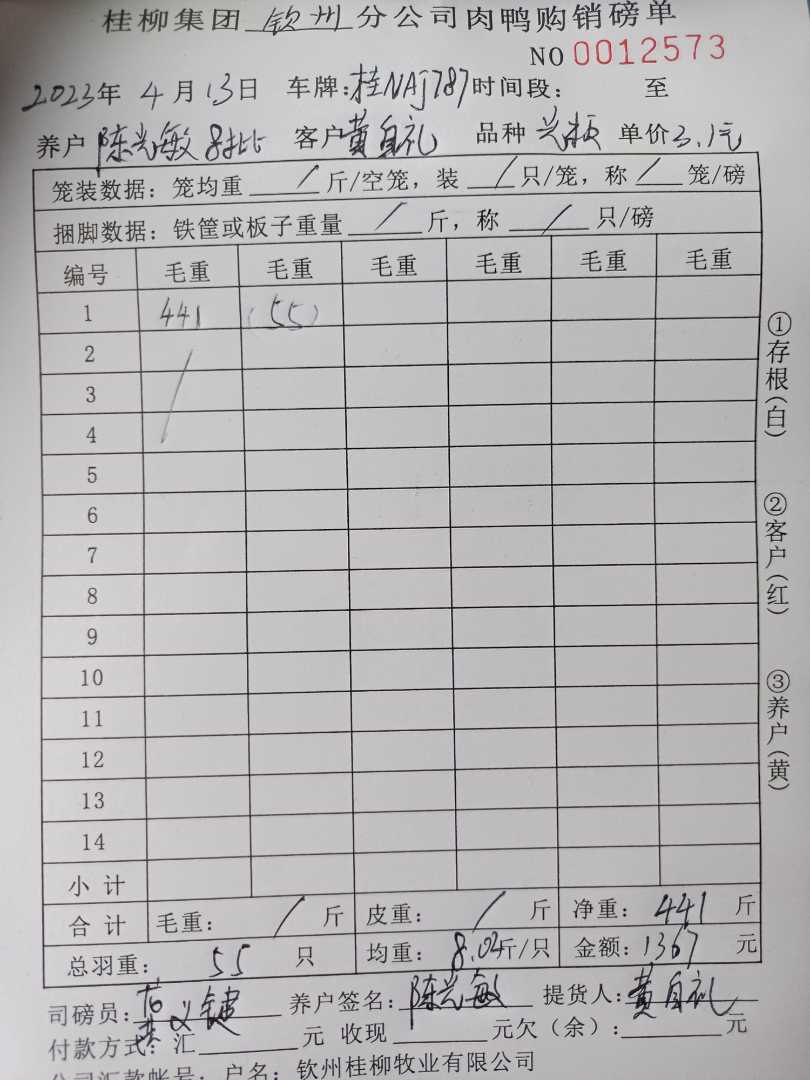 桂柳集团 钦州 分公司肉鸭购销磅单
NO 0012573
2023年 4月 13日 车牌:桂NAJ787 时间段: 至
养户 陈光敏 8批 客户 黄自礼 品种 单价 3.1元
笼装数据: 笼均重 / 斤/空笼, 装 / 只/笼, 称 / 笼/磅
捆脚数据: 铁筐或板子重量 / 斤, 称 / 只/磅
编号 毛重 毛重 毛重 毛重 毛重 毛重
1 441 (55)
2
3
4
5
6
7
8
9
10
11
12
13
14
小计
合计 毛重: / 斤 皮重: / 斤 净重: 441 斤
总羽重: 55 只 均重: 8.02斤/只 金额: 1367 元
司磅员: 养户签名: 陈光敏 提货人: 黄自礼
付款方式: 汇 元 收现 元欠(余): 元
公司汇款帐号: 户名: 钦州桂柳牧业有限公司
①存根(白)
②客户(红)
③养户(黄)